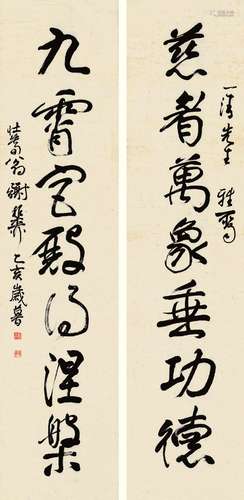 一清先生雅
慈者萬象垂功德
九霄宮殿得涅槃
壯暮翁謝稚柳乙亥歲暮